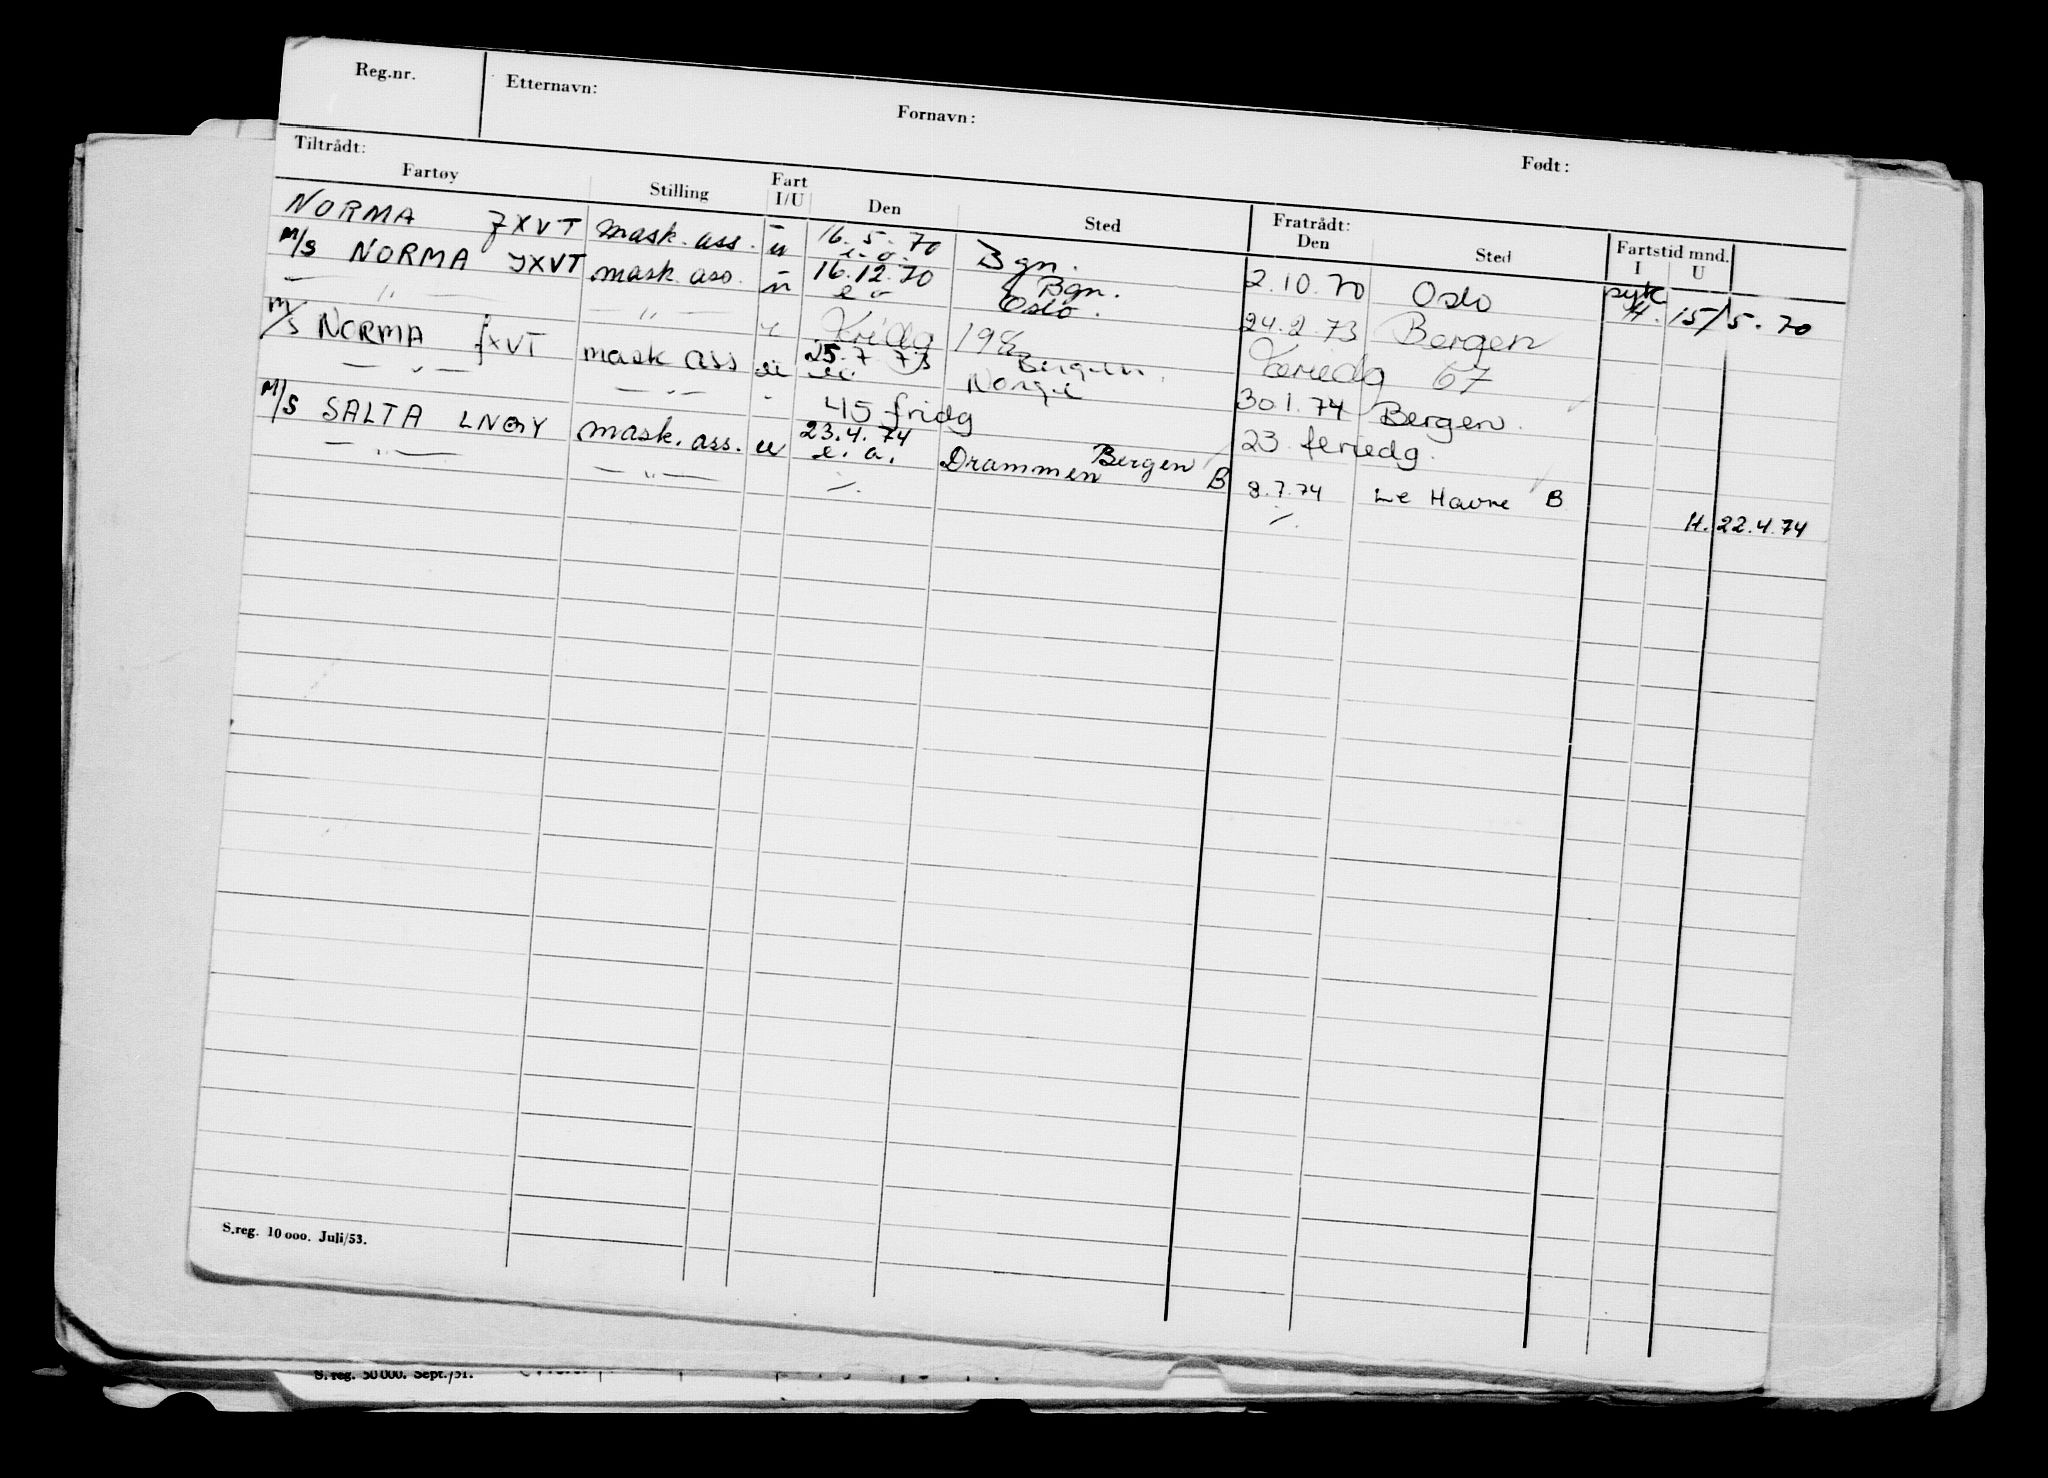 Reg.nr. Etternavn: Fornavn: Født:
Tiltrådt: Fratrådt:
Fartøy Stilling Fart I/U Den Sted Den Sted Fartstid mnd. I U
NORMA JXVT mask. ass. u 16. 5. 70 Bgn. 2.10.70 Oslo syk H. 15/5. 70
M/S NORMA JXVT mask. ass. u e. o. 16.12.70 Bgn. 24.2.73 Bergen
— " — — " — e o Oslo. Feriedg 67
Fridg 198
M/S NORMA JXVT mask ass u 25.7 73 Bergen. 30.1.74 Bergen.
— " — — " — Norge 23 feriedg.
45 fridg
M/S SALTA LNGY mask. ass. u 23.4.74 Bergen 8.7.74 Le Havre B H. 22.4.74
— " — — " — e. o. Drammen B
S.reg. 10 000. Juli/53.
S. reg. 50 000. Sept./51.